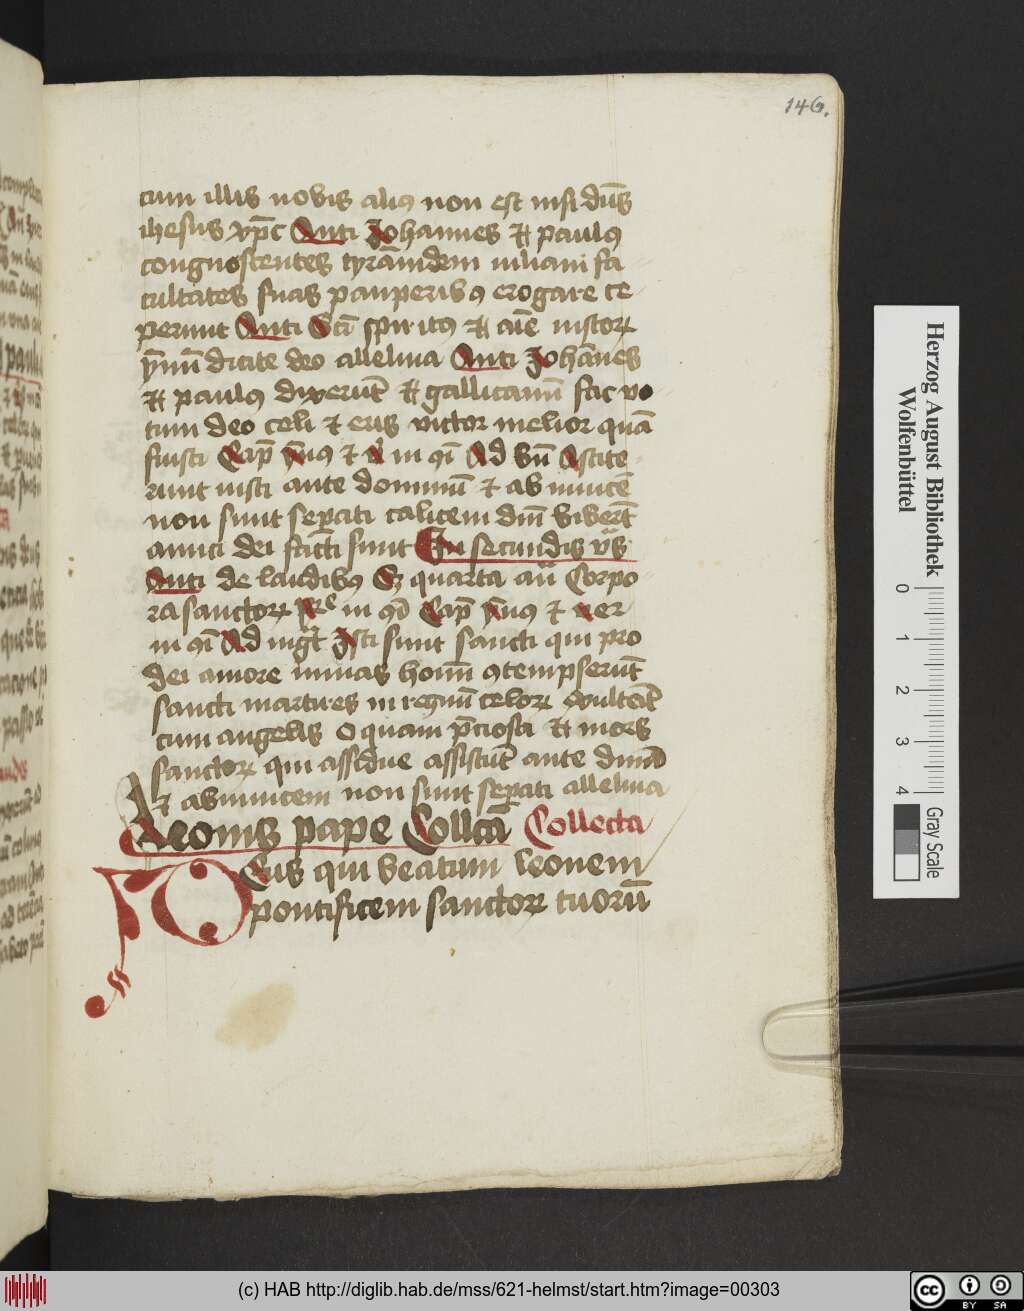 146.
cum illis nobis alius non est nisi dūs
ihesus xp̄c Anti Johannes et paulus
congnoscentes tyrānidem iuliani fa
cultates suas pauperibus erogare ce
perunt Anti Scī spiritus et aīe iustorꝝ
ymnū dicite deo alleluia Anti Johānes
et paulus dixerūt et gallicanū fac vo
tum deo celi et eris victor melior quā
fuisti Cap̄ ymus et in qī Ad Astite
runt iusti ante dominū et ab inuicē
non sunt separati calicem dn̄i biberūt
amici dei facti sunt In secundis
Anti de laudibus quarta Corpo
ra sanctorꝝ in Cap̄ ymus et ver
in qī Ad Isti sunt sancti qui pro
dei amore minas homī ꝯtempserūt
sancti martires in regnū celorꝝ exultāt
cum angelis O quam p̄ciosa mors
sanctorꝝ qui assidue assistūt ante dn̄m
et abinuicem non sunt separati alleluia
Leonis pape Collcā Collecta
Deus qui beatum leonem
pontificem sanctorꝝ tuorū
Herzog August Bibliothek
Wolfenbüttel
0 1 2 3 4
Gray Scale
(c) HAB http://diglib.hab.de/mss/621-helmst/start.htm?image=00303
cc BY SA